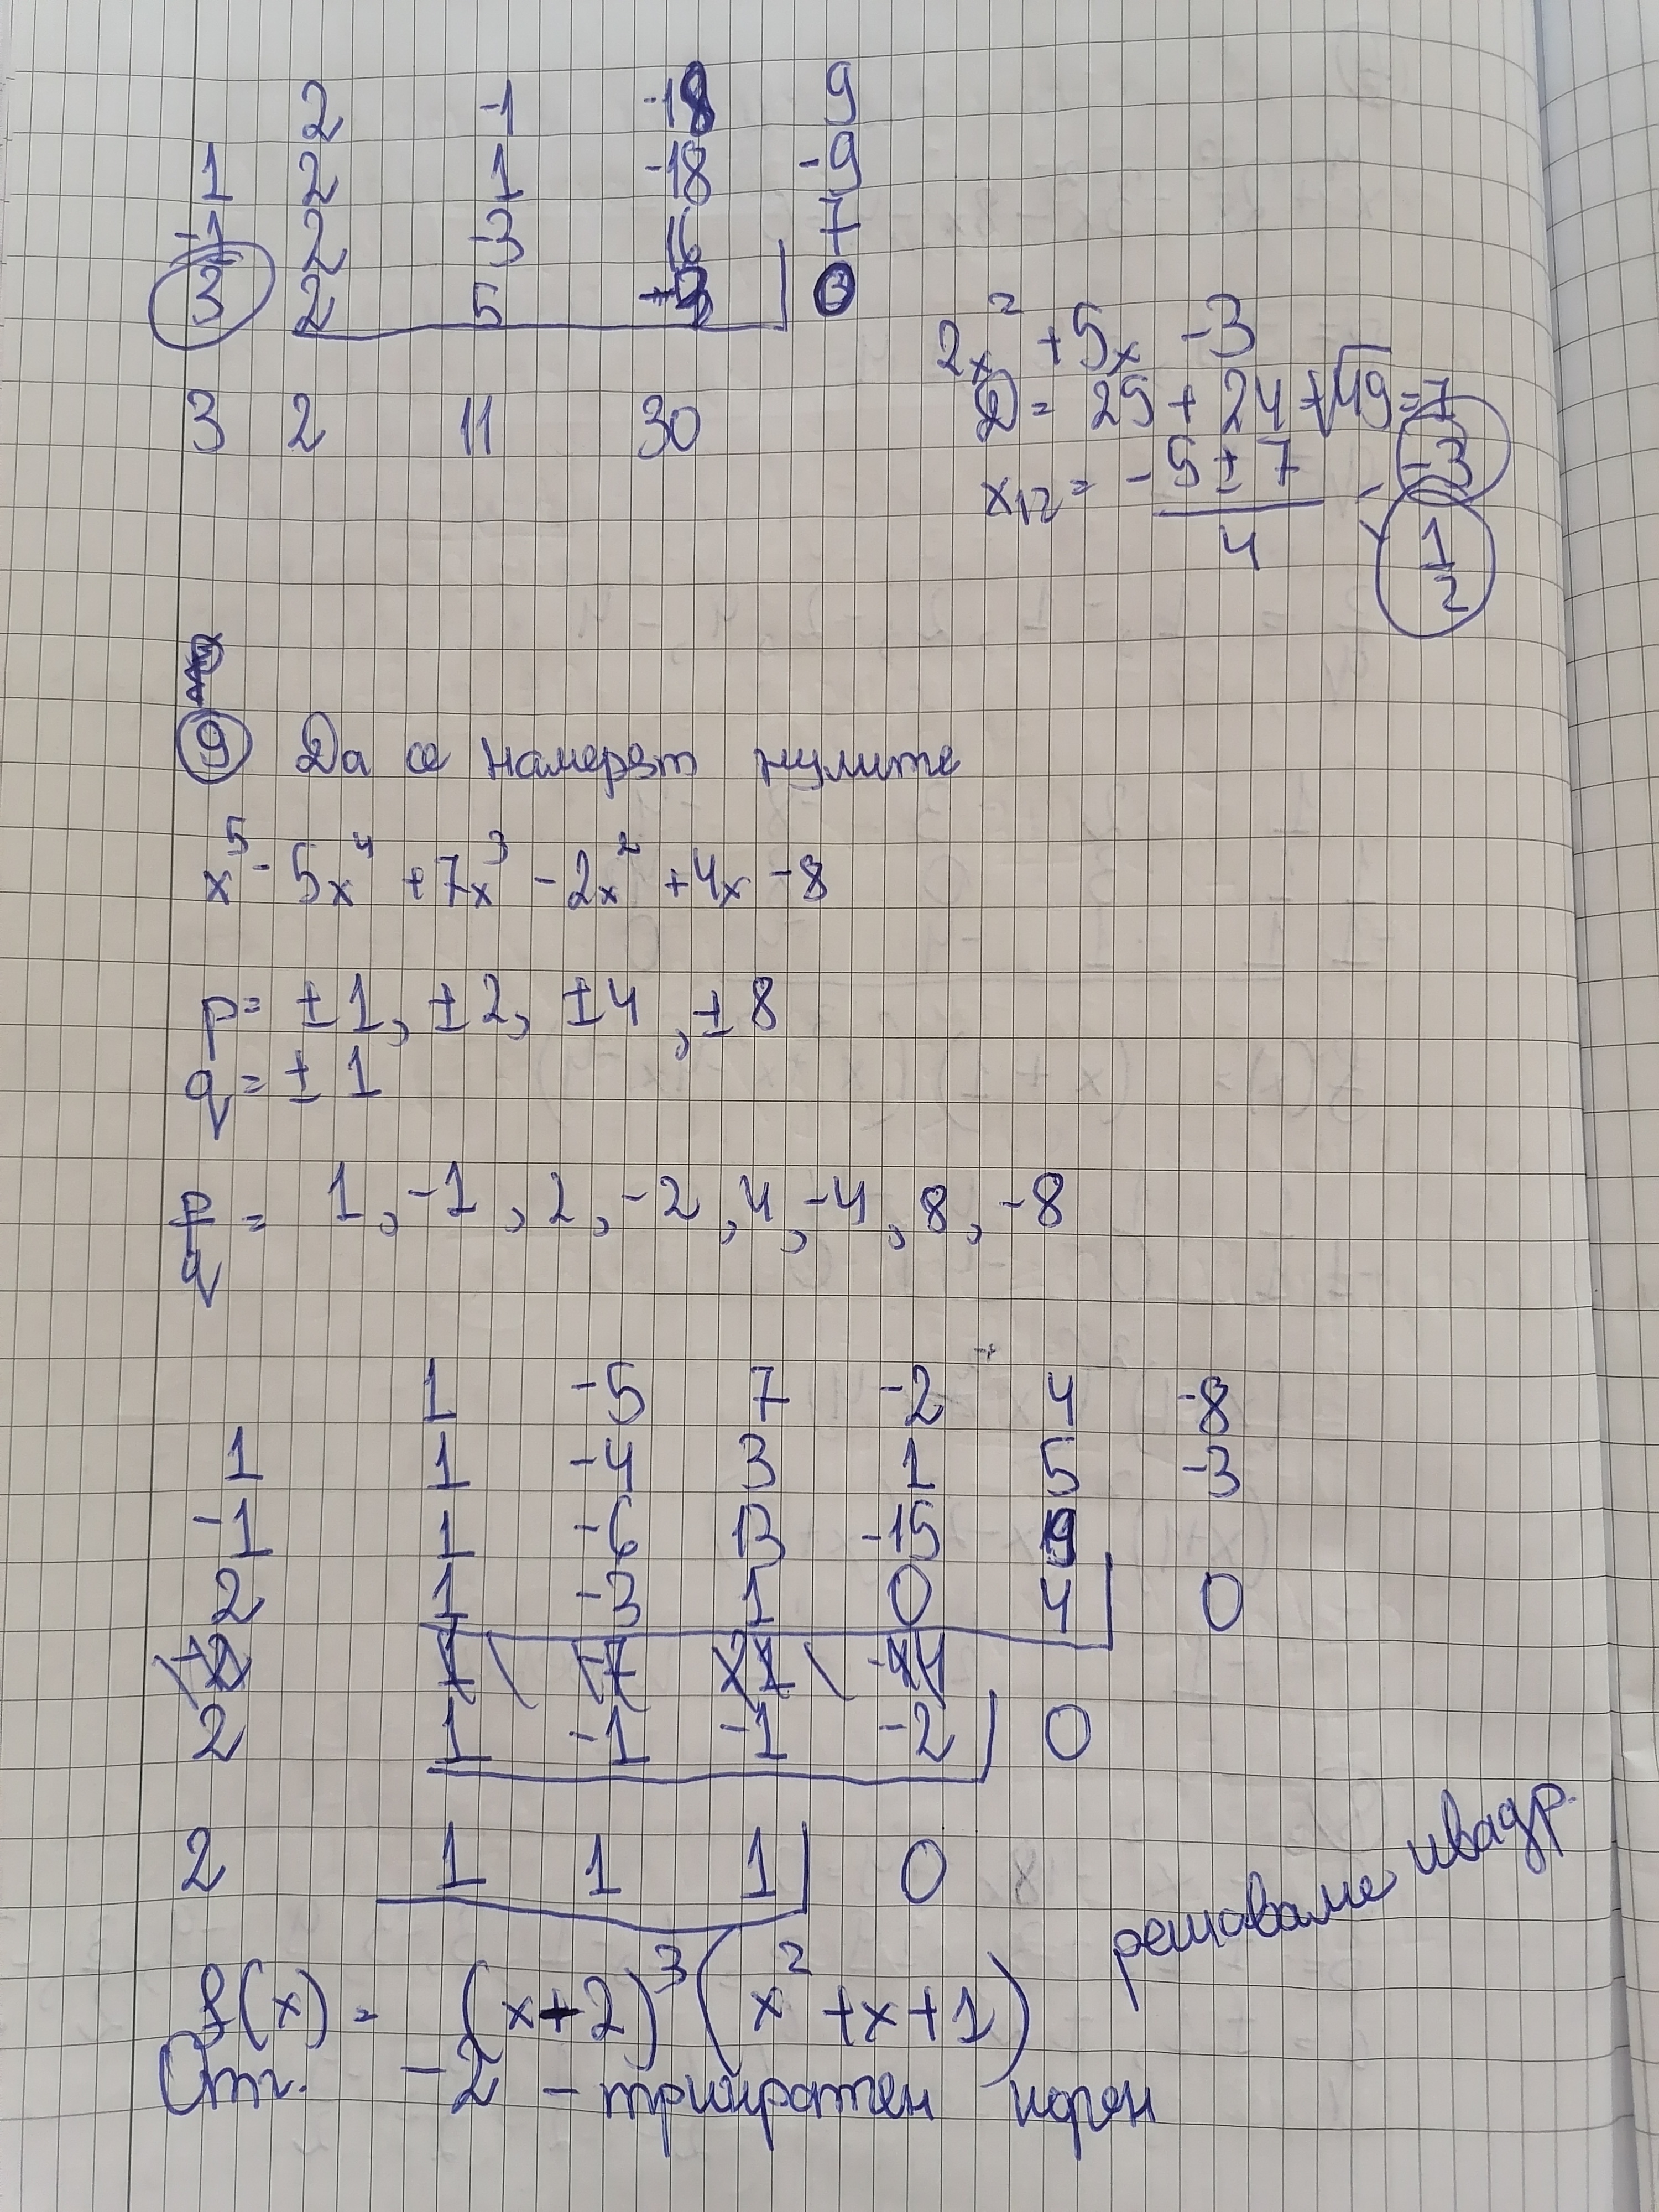 2 -1 -18 9
1 2 1 -18 -9
-1 2 -3 16 7
3 2 5 -3 0
3 2 11 30
2x² +5x -3
D = 25 + 24 = √49 = 7
x₁₂ = (-5 ± 7)/4
-3
1/2
9 Да се намерят нулите
x⁵ - 5x⁴ + 7x³ - 2x² + 4x - 8
p = ±1, ±2, ±4, ±8
q = ±1
p/q = 1, -1, 2, -2, 4, -4, 8, -8
1 -5 7 -2 4 -8
1 1 -4 3 1 5 -3
-1 1 -6 13 -15 19
2 1 -3 1 0 4 0
2 1 -1 -1 -2 0
2 1 1 1 0
решаваме квадр.
f(x) = (x+2)³(x² + x + 1)
Отг. -2 - трикратен корен